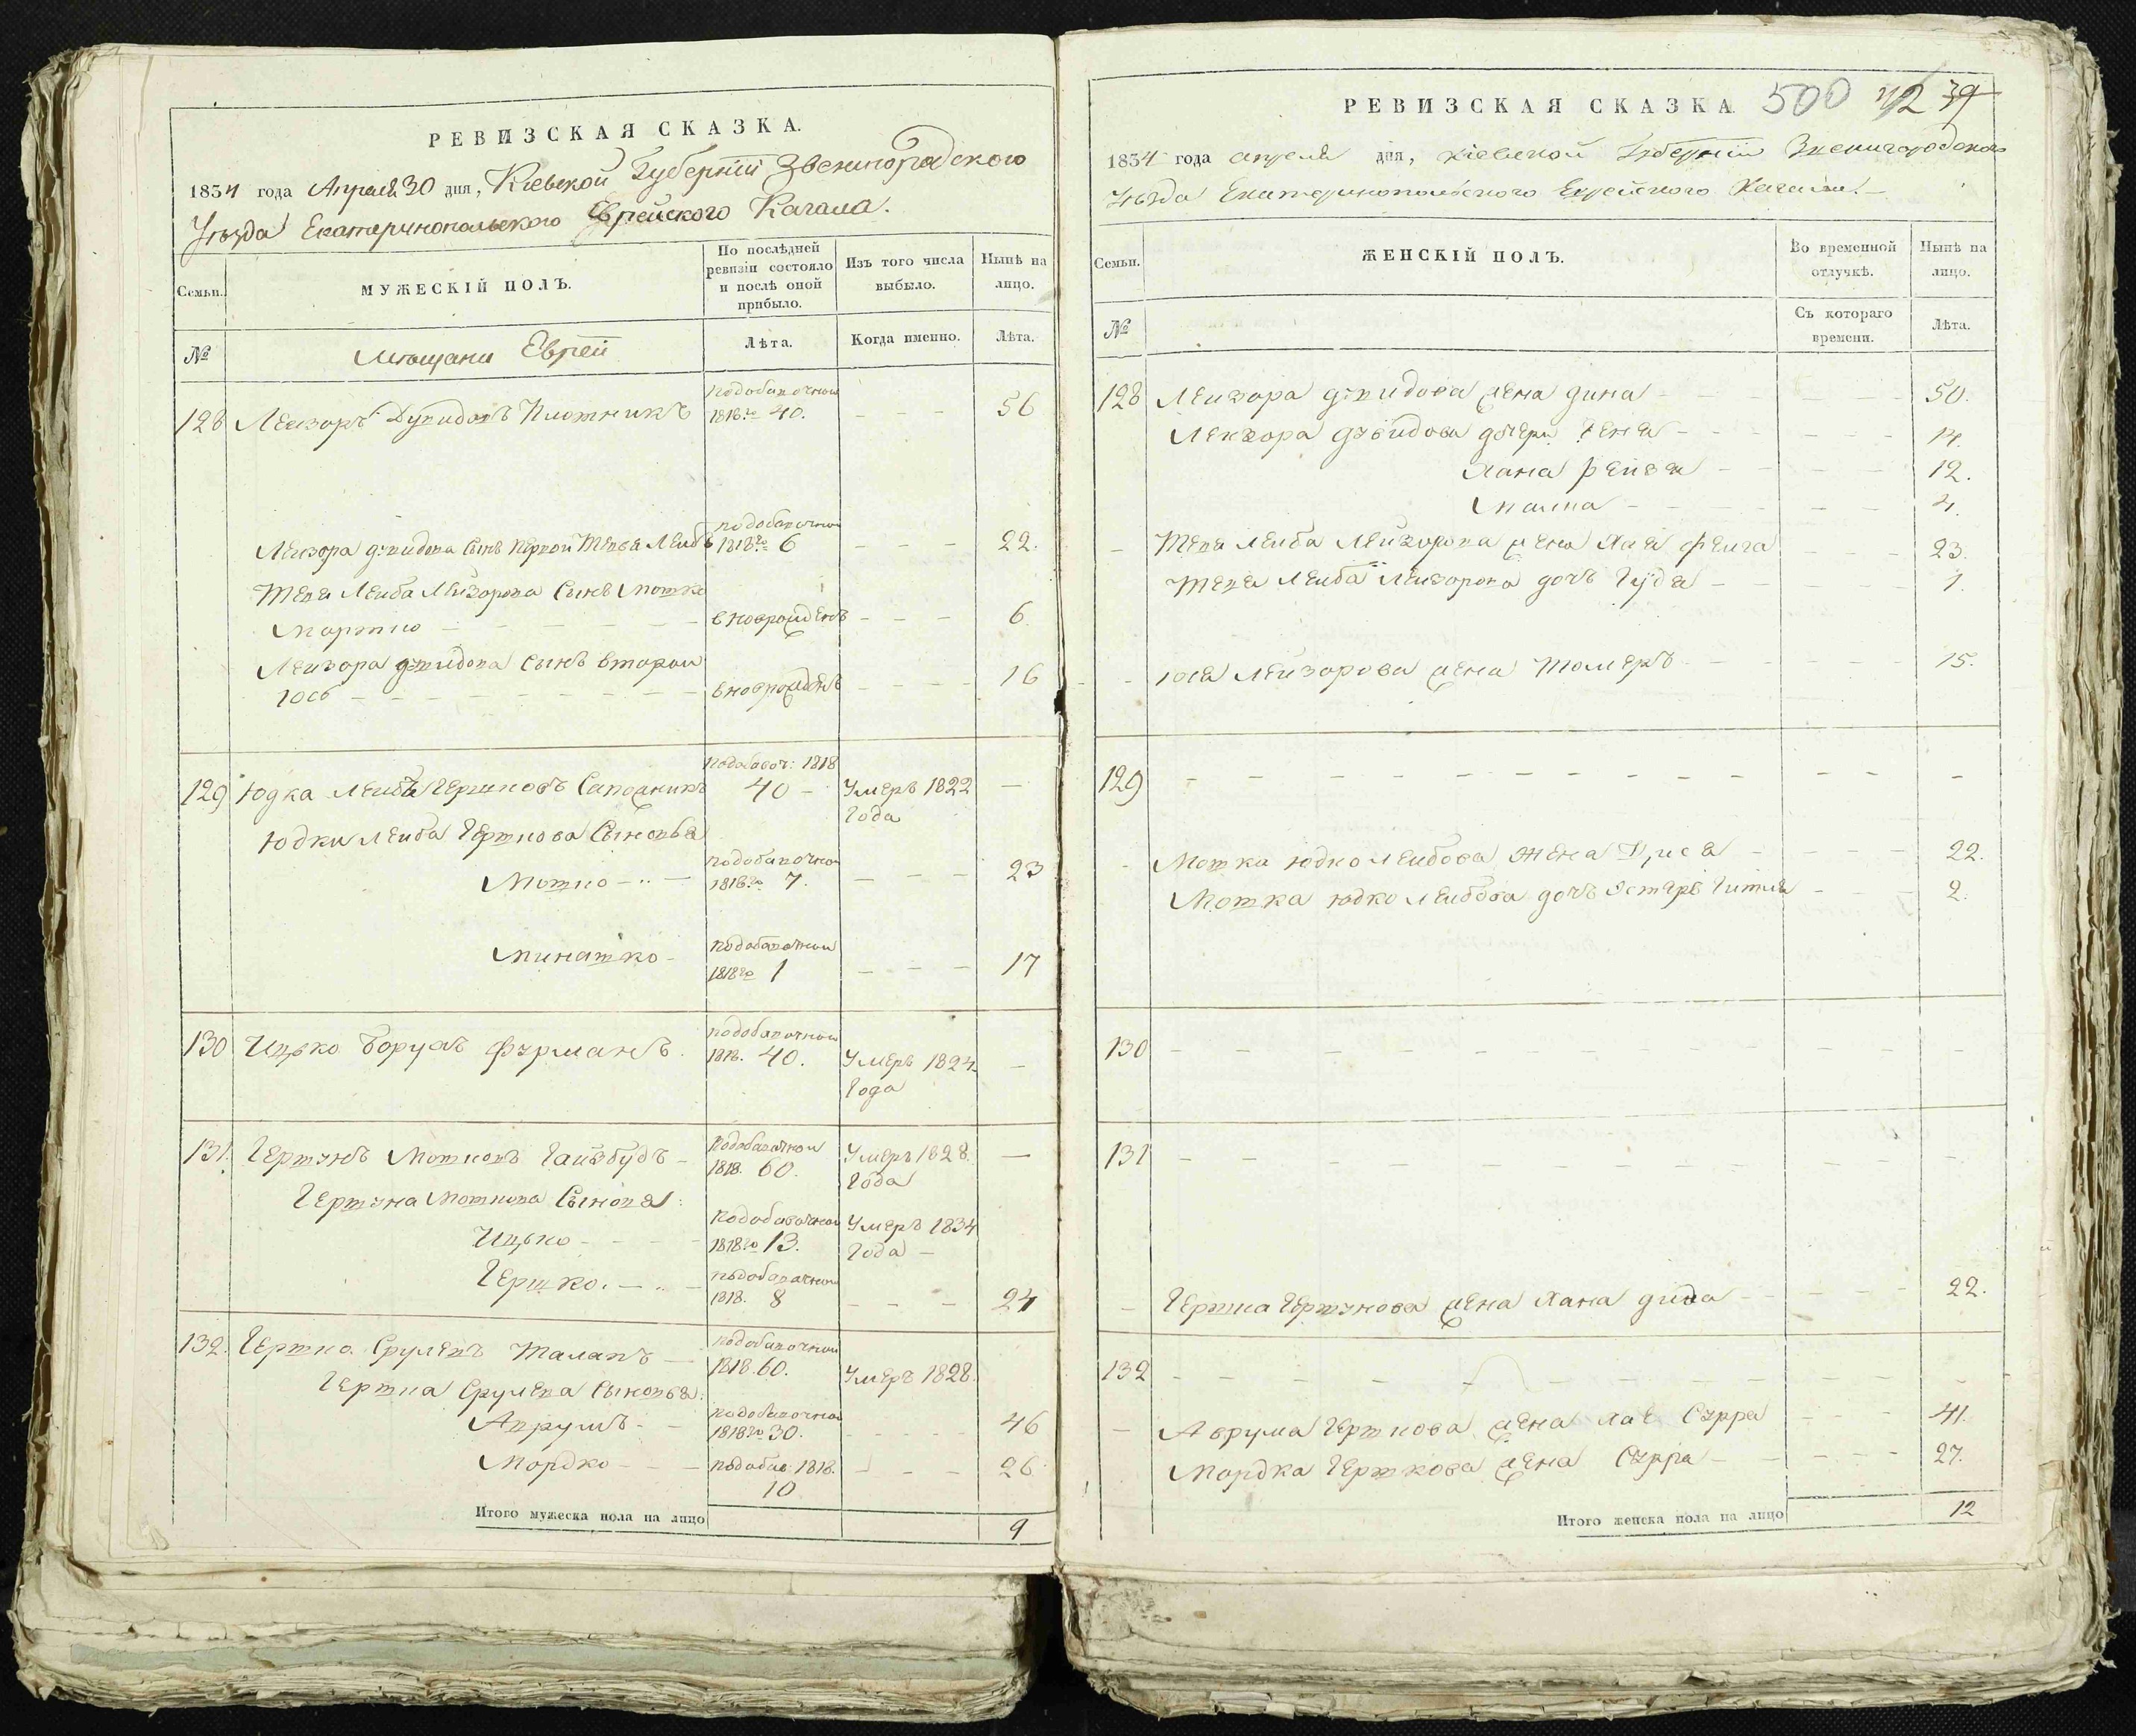 РЕВИЗСКАЯ СКАЗКА.
1834 года Апреля 30 дня, Кіевской Губерніи Звенигородского
Уѣзда Екатеринопольского Еврейского Кагала.
Семьи.
МУЖЕСКІЙ ПОЛЪ.
По послѣдней ревизіи состояло и послѣ оной прибыло.
Изъ того числа выбыло.
Нынѣ на лицо.
№
Мѣщани Еврей
Лѣта.
Когда именно.
Лѣта.
подобавочной
128 Лейзоръ Дувидовъ Плотникъ 1818го 40. - - 56
подобавочной
Лейзора Дувидова Сынъ первой Тевья Лейбъ 1818го 6 - - - 22.
Тевя Лейба Лейзорова Сынъ Мошко
Мортко - - - вноврожденъ - - - 6.
Лейзора Дувидова Сынъ второй
Юсь - - - вноврожденъ - - - 16
подобавоч: 1818
129 Юдка Лейба Гершковъ Сапожникъ 40 - Умеръ 1822 -
Года
Юдки Лейба Гершкова Сыновья
подобавочной
Мошко - 1818го 7. - - - 23
подобавочной
1818го 1 - - - 17
подобавочной
130 Ицько Борухъ Фурманъ. 1818. 40. Умеръ 1824 -
Года
подобавочной
131. Гершунъ Мошковъ 1818. 60. Умеръ 1828. -
Года
Гершуна Мошкова Сыновья:
подобавочной
Ицько - - - 1818го 13. Умеръ 1834
Года -
подобавочной
Гершко. - 1818. 8 - - - 24
подобавочной
132. Гершко Срулевъ 1818. 60. Умеръ 1828.
Гершка Срулева Сыновья:
подобавочной
Аврумъ - - 1818го 30. - - - 46
Мордко - - - подобав: 1818. - - - 26
10
Итого мужеска пола на лицо 9
РЕВИЗСКАЯ СКАЗКА 500 39
1834 года апреля дня, Кіевской Губерніи Звенигородского
Уѣзда Екатеринопольского Еврейского Кагала. -
Семьи.
ЖЕНСКІЙ ПОЛЪ.
Во временной отлучкѣ.
Нынѣ на лицо.
№
Съ котораго времени.
Лѣта.
128 Лейзора Дувидова жена Дина - - - 50.
Лейзора Дувидова дочери Геня - - - 14.
Хана Рейза - - - 12.
Малка - - - 4.
- Тевя Лейба Лейзорова жена Хая Фейга - - - 23.
Тевя Лейба Лейзорова дочь Гуда - - - 1.
- Юся Лейзорова жена - - - 15.
129 - - -
- Мошка Юдко Лейбова жена - - - 22.
Мошка Юдко Лейбова дочь Эстеръ Гитля - - - 2.
130 - - -
131 - - -
- Гершка Гершунова жена Хана - - - 22.
132 - - -
- Аврума Гершкова жена Хая Сурра - - - 41.
Мордка Гершкова жена Сурра - - - 27.
Итого женска пола на лицо 12